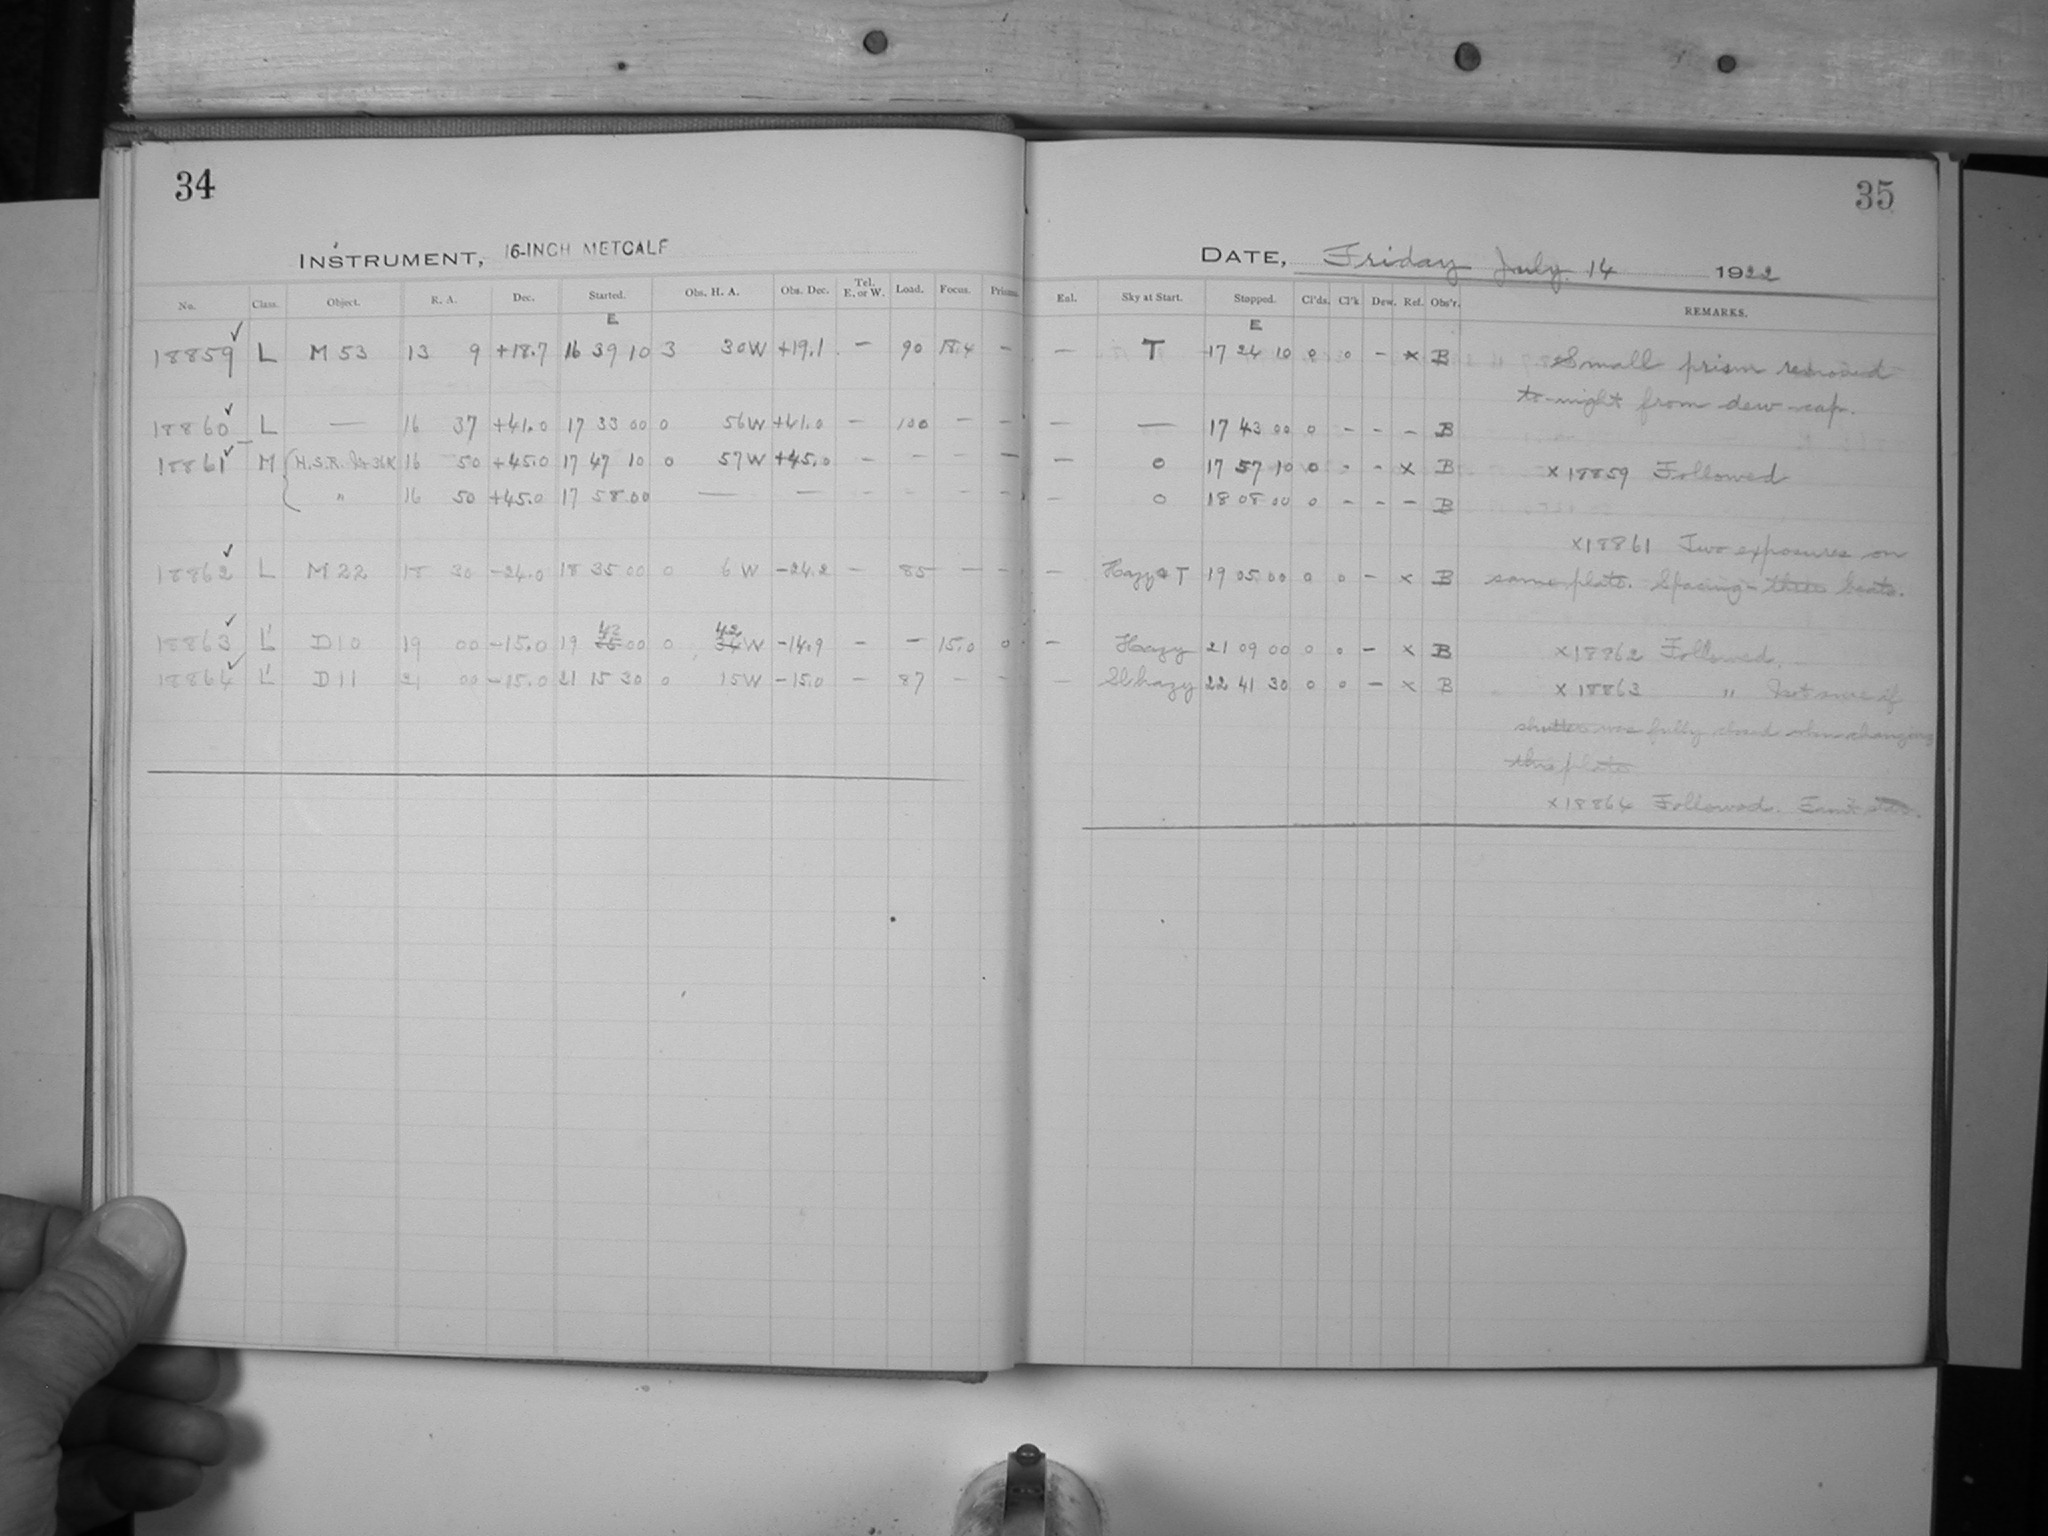 34
INSTRUMENT, 16-INCH METCALF
No. Class. Object. R. A. Dec. Started. Obs. H. A. Obs. Dec. Tel. E. or W. Load. Focus. Prisms.
E
18859 L M 53 13 9 +18.7 16 39 10 3 30W +19.1 - 90 18.4 -
18860 L — 16 37 +41.0 17 33 00 0 56W +41.0 - 100 - -
18861 M H.S.R. 36K 16 50 +45.0 17 47 10 0 57W +45.0 - - - -
" 16 50 +45.0 17 58 00 — — - - - -
18862 L M22 18 30 -24.0 18 35 00 0 6 W -24.2 - 85 - -
42 42
18863 L' D10 19 00 -15.0 19 35 00 0 34 W -14.9 - - 15.0 0
18864 L' D11 21 00 -15.0 21 15 30 0 15W -15.0 - 87 - -
35
DATE, Friday July 14 1922
Eal. Sky at Start. Stopped. Cl'ds. Cl'k. Dew. Ref. Obs'r. REMARKS.
E
- T 17 24 10 0 0 - x B Small prism removed
to-night from dew-cap.
- — 17 43 00 0 - - - B
- 0 17 57 10 0 - - x B x 18859 Followed
- 0 18 08 00 0 - - - B
x 18861 Two exposures on
- Hazy & T 19 05 00 0 0 - x B same plate. Spacing - three beats.
- Hazy 21 09 00 0 0 - x B x 18862 Followed.
- Sl hazy 22 41 30 0 0 - x B x 18863 " Not sure if
shutter was fully closed when changing
this plate
x 18864 Followed. Faint star.